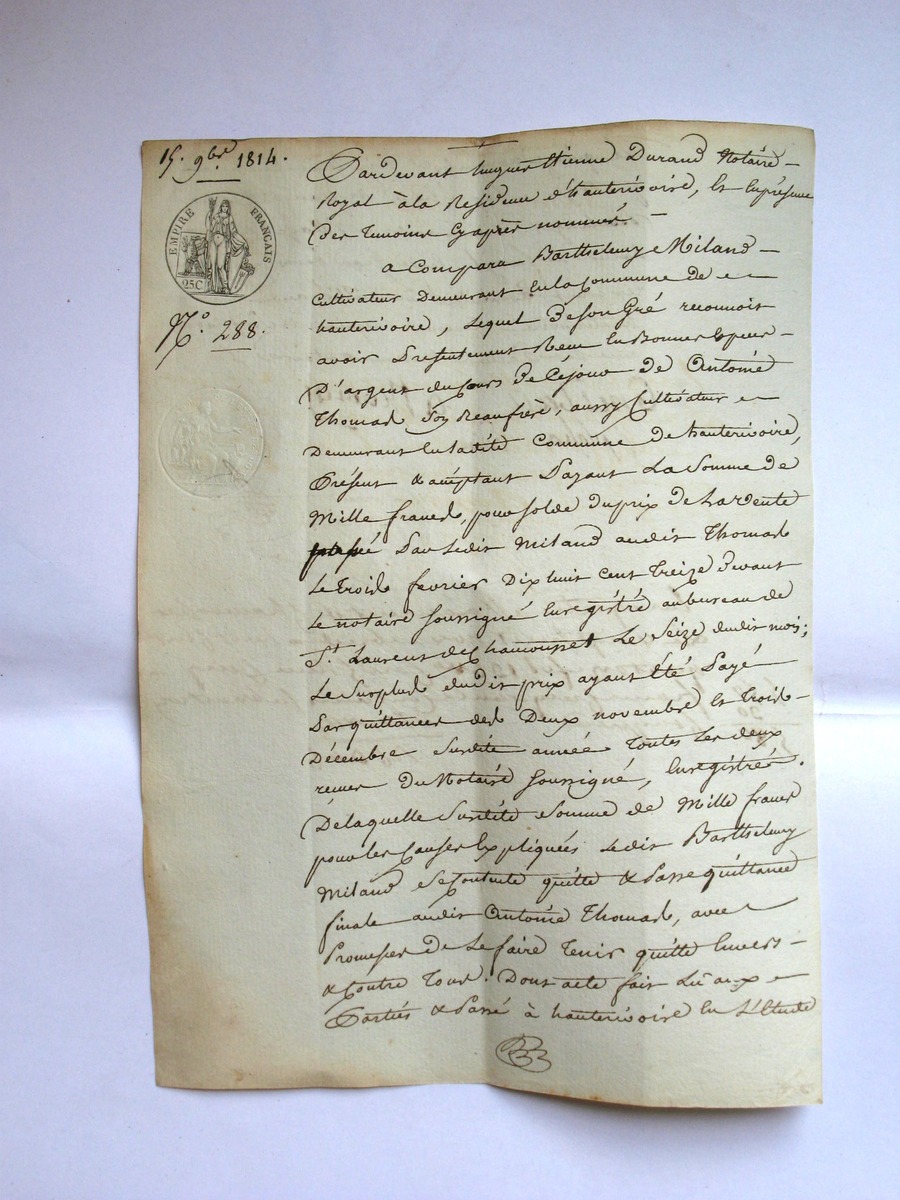 15. 9bre 1814.
EMPIRE FRANÇAIS
25C
N.o 288.
Pardevant hugues Etienne Durand Notaire
Royal à la Residence d'hauterivoire, et En présence
des temoins Cy après nommés
a Comparu Barthelemy Miland
Cultivateur Demeurant En la Commune de
hauterivoire, lequel De son Gré reconnoit
avoir Presentement Recu En Bonnes Especes
D'argent du Cours De Céjour de Antoine
Thomas son Beaufrère, aussy Cultivateur
Demeurant En ladite Commune de hauterivoire,
Présent & acceptant Payant La Somme de
Mille francs, pour Solde du prix de La vente
passé Par Ledit Miland audit Thomas
Le Trois fevrier Dix huit Cent Treize Devant
Le notaire Soussigné Enregistré au bureau de
St. Laurent de Chamousset Le Seize dudit mois;
Le Surplus dudit prix ayant Eté Payé
Par quittances des Deux novembre et Trois
Décembre Susdite année Toutes Les deux
recues Du Notaire Soussigné, Enregistrés.
De laquelle Susdite Somme de Mille francs
pour les Causes Expliquées Ledit Barthelemy
Miland se Contente quitte & Passe quittance
finale audit Antoine Thomas, avec
Promesses de Le faire Tenir quitte Envers
& Contre Tous. Dont acte fait Lu aux
Parties & Passé à hauterivoire En L'Etude